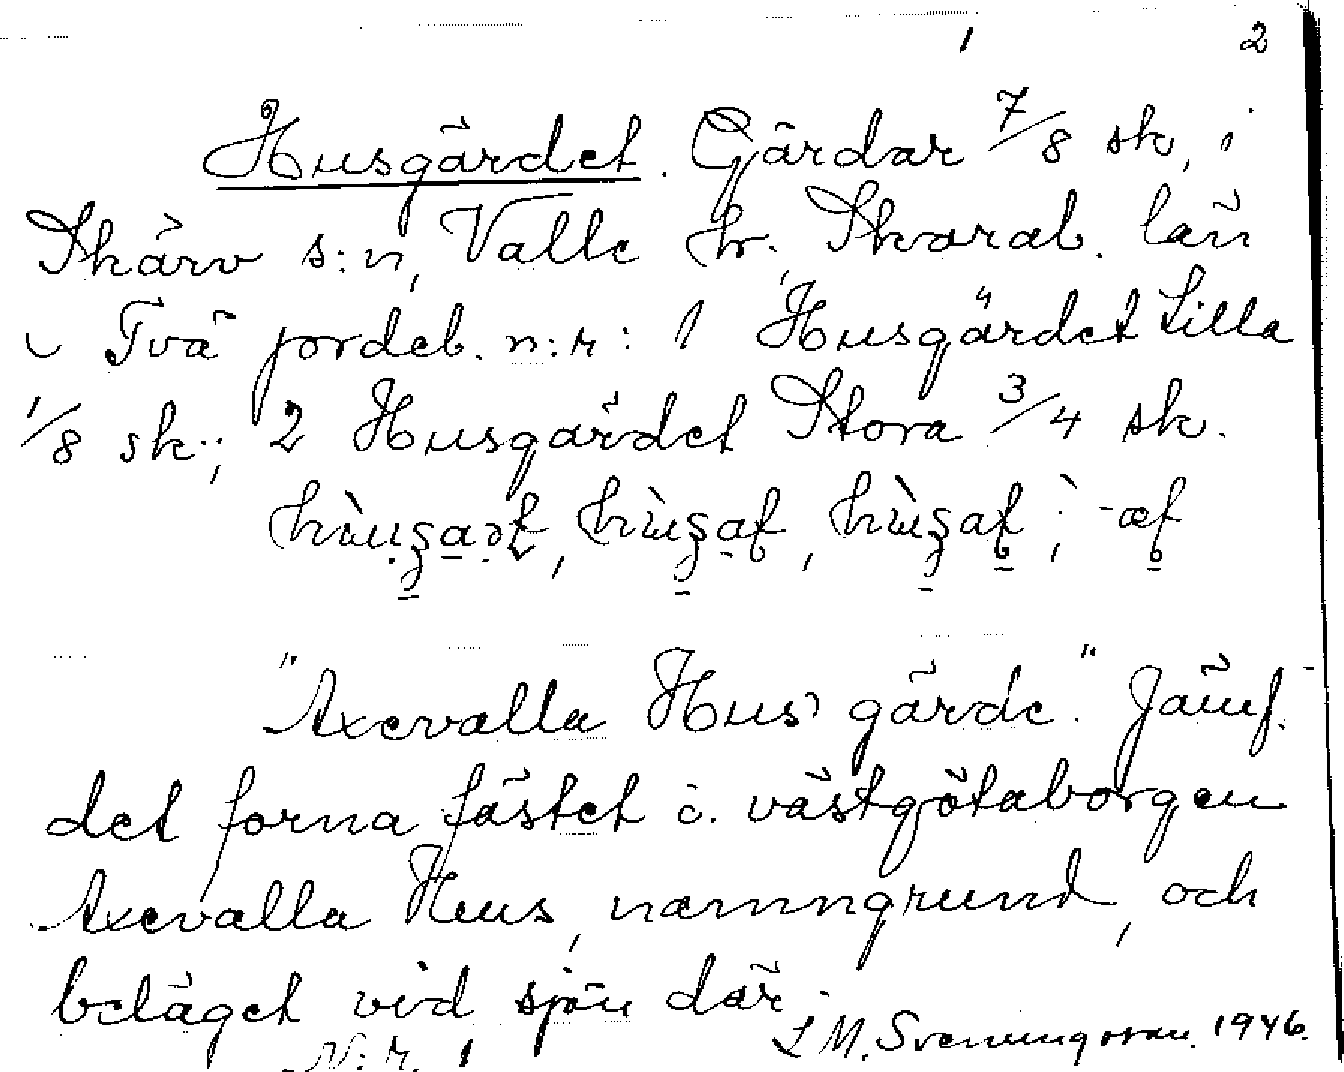 1 2
Husgärdet. Gärdar 7/8 sk, i
Skärv s:n, Valle hr, Skarab. län
Två jordeb. n:r: 1 Husgärdet Lilla
1/8 sk.; 2 Husgärdet Stora 3/4 sk.
"Axevalla Hus' gärde". Jämf.
det forna fästet å västgötaborgen
Axevalla Hus, namngrund, och
beläget vid sjön där.
N:r. 1 L M. Svenungsson. 1946.